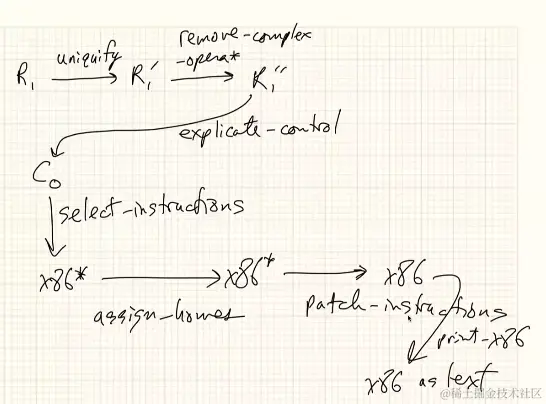 uniquify
remove-complex
-opera*
R₁ R₁′ R₁″
explicate-control
C₀
select-instructions
x86* x86* x86
assign-homes
patch-instructions
print-x86
x86 as text
@稀土掘金技术社区